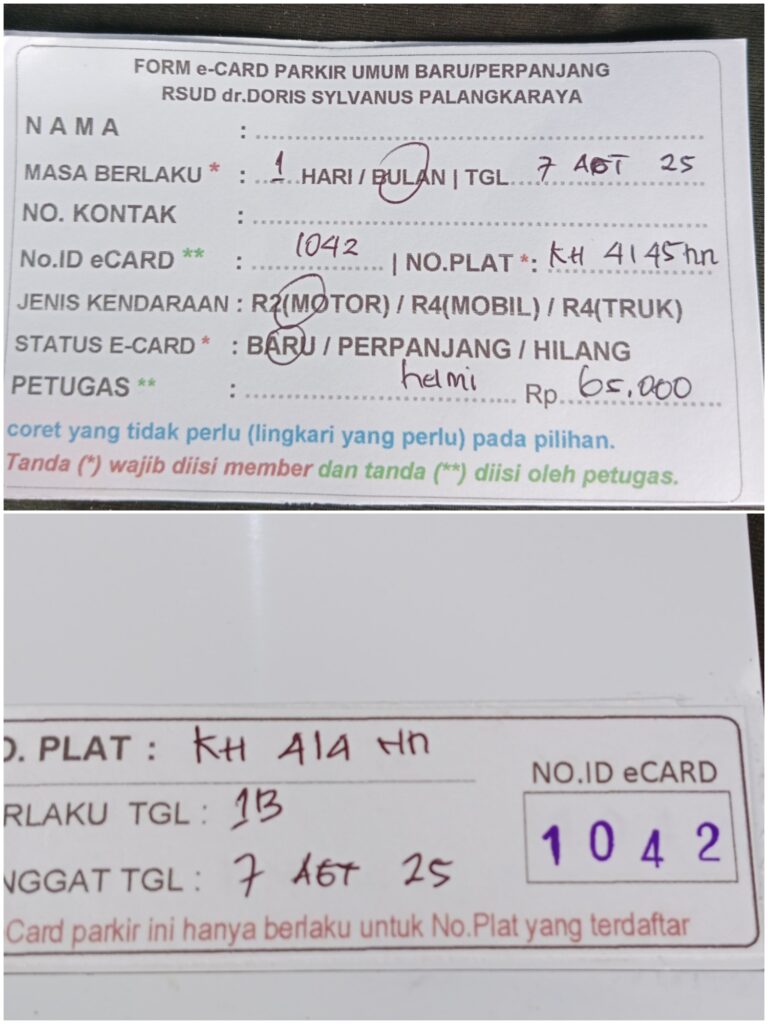 FORM e-CARD PARKIR UMUM BARU/PERPANJANG
RSUD dr.DORIS SYLVANUS PALANGKARAYA
NAMA :
MASA BERLAKU * : 1 HARI / BULAN | TGL. 7 AGT 25
NO. KONTAK :
No.ID eCARD ** : 1042 | NO.PLAT *: KH 4145 HN
JENIS KENDARAAN : R2(MOTOR) / R4(MOBIL) / R4(TRUK)
STATUS E-CARD * : BARU / PERPANJANG / HILANG
PETUGAS ** : helmi Rp. 65.000
coret yang tidak perlu (lingkari yang perlu) pada pilihan.
Tanda (*) wajib diisi member dan tanda (**) diisi oleh petugas.
O. PLAT : KH 414 HN
RLAKU TGL : 1B
NGGAT TGL : 7 AGT 25
NO.ID eCARD
1042
Card parkir ini hanya berlaku untuk No.Plat yang terdaftar